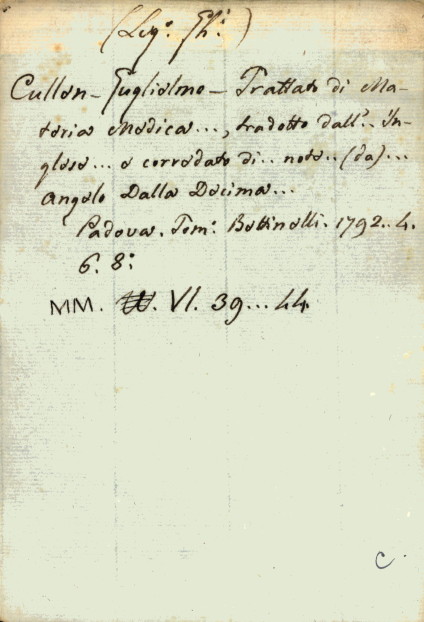 (Leg. Gh.)
Cullen - Guglielmo - Trattato di Ma-
teria Medica..., tradotto dall'.. in-
glese... e corredato di.. note.. (da)...
Angelo Dalla Decima...
Padova. Tom: Bettinelli. 1792..4.
6. 8:
MM. VI. 39... 44.
C.